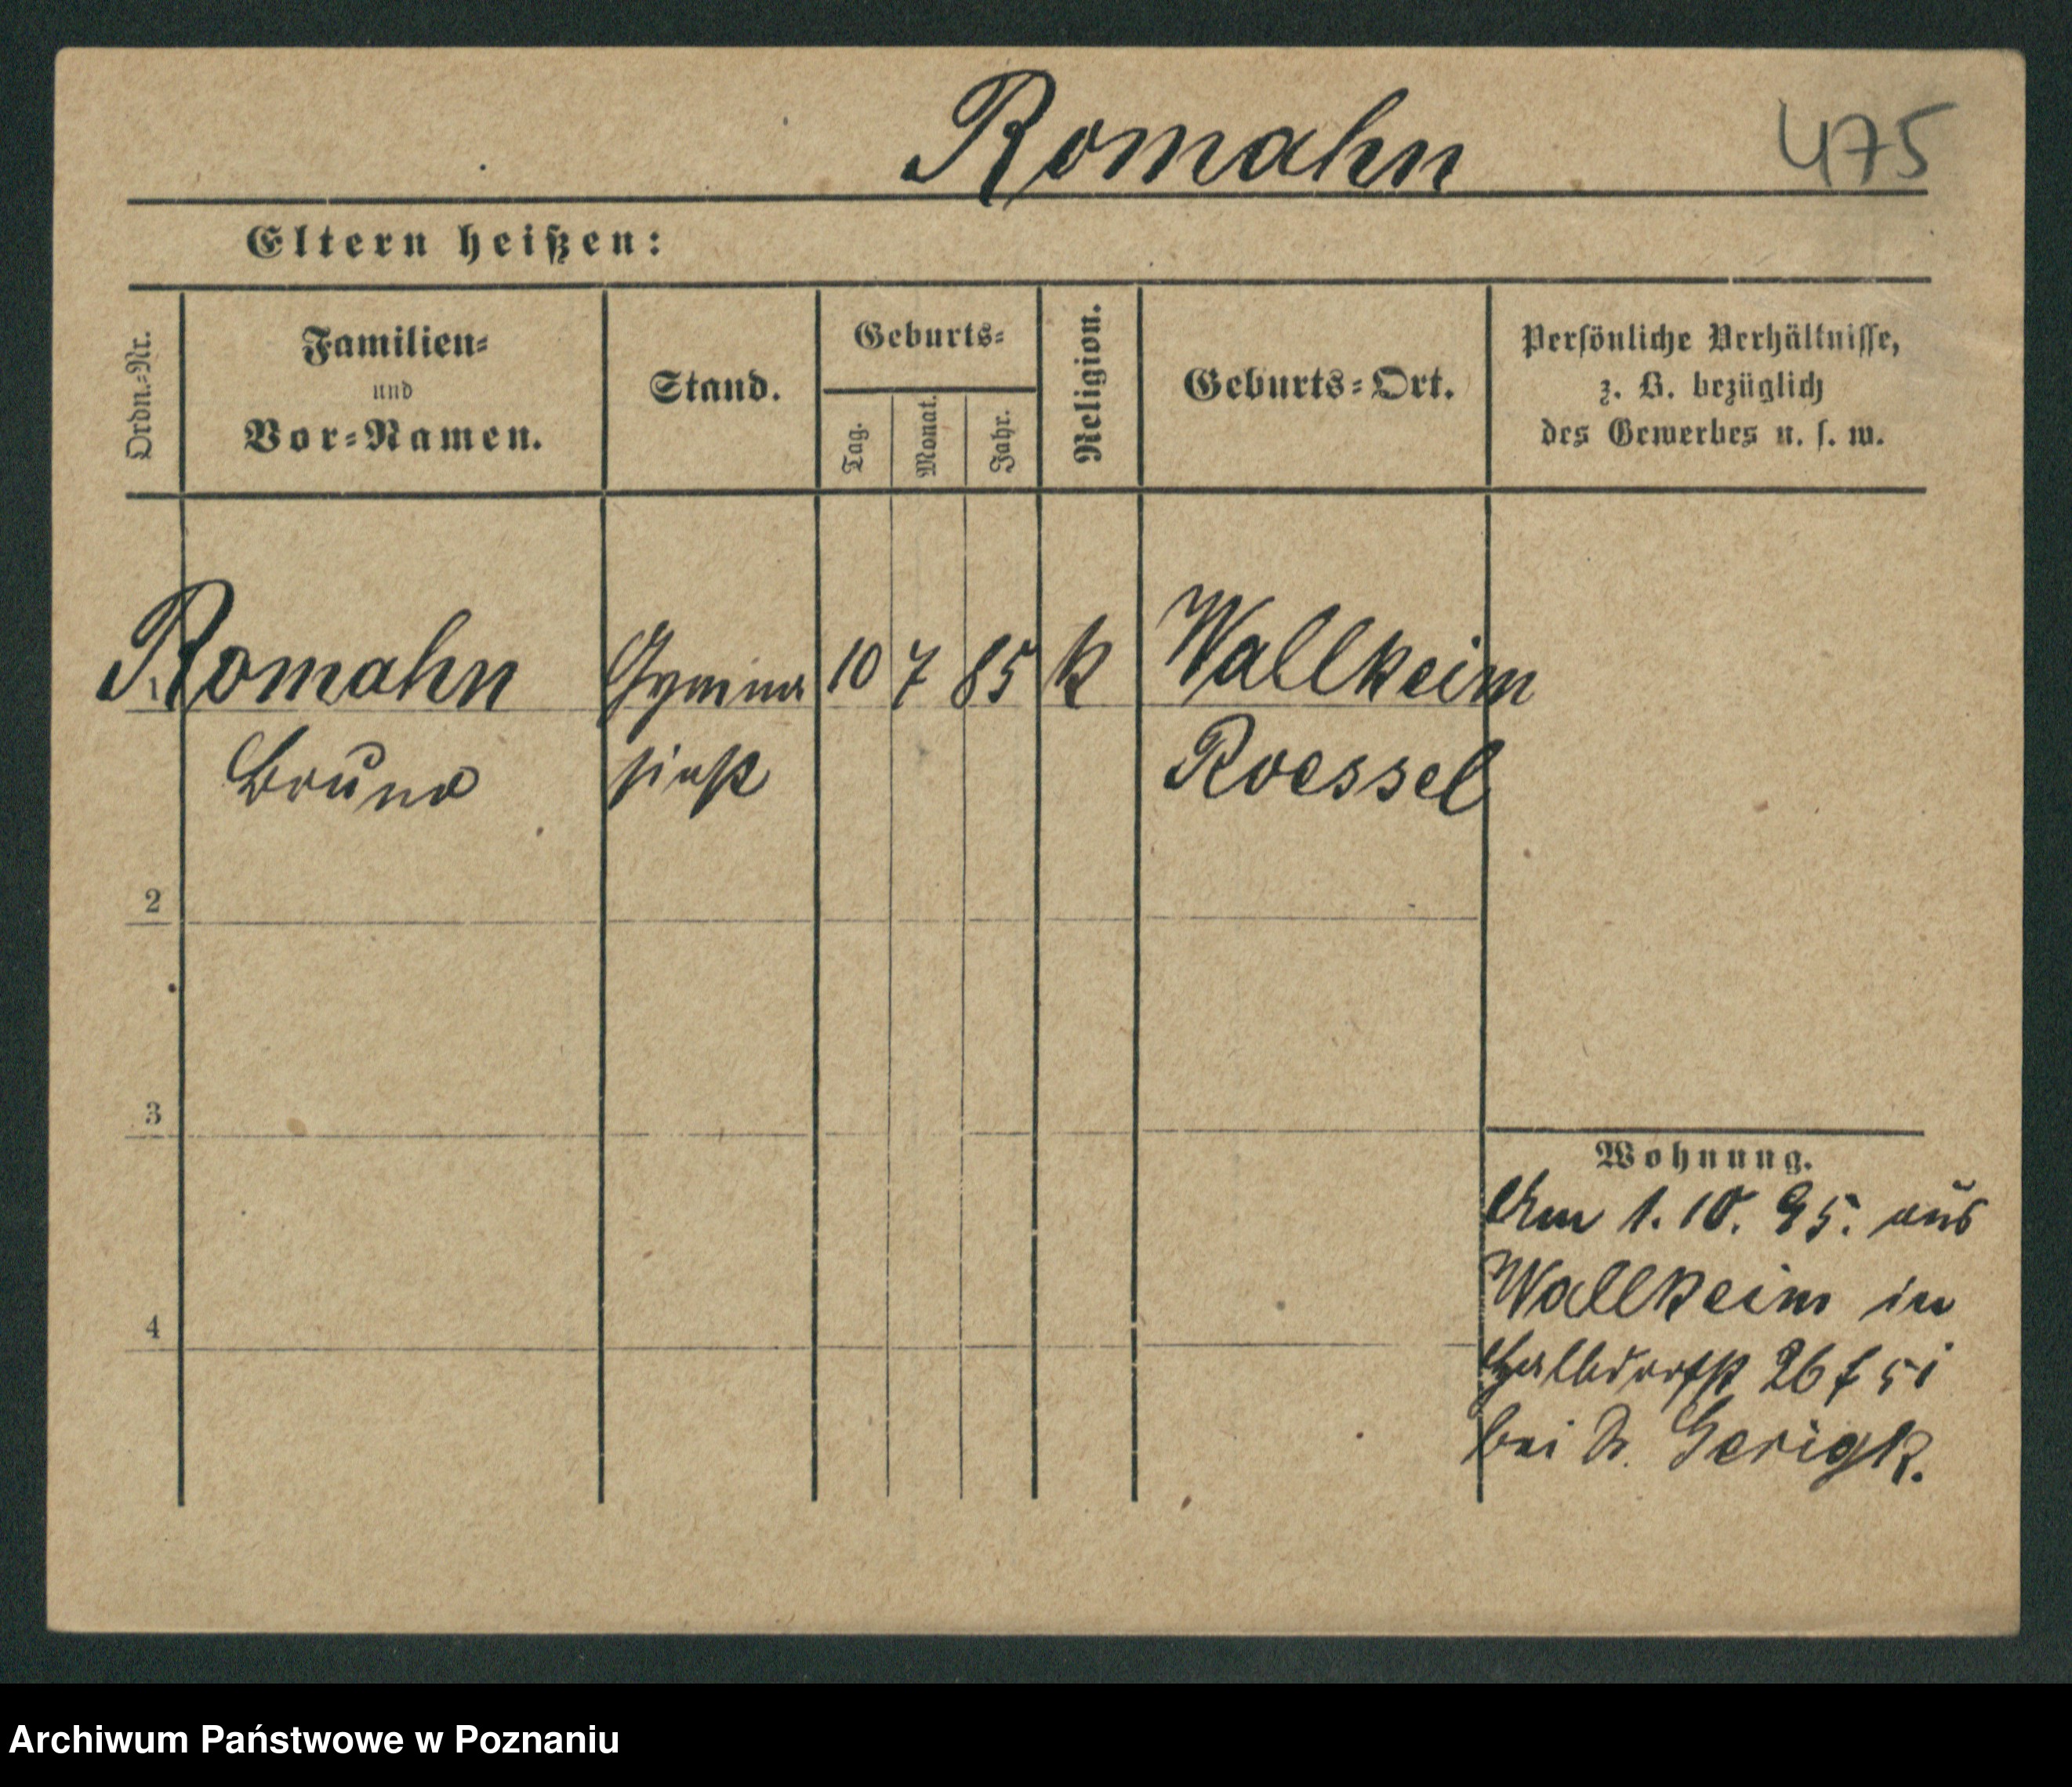 Romahn 475
Eltern heißen:
Ordn.-Nr.
Familien-
und
Vor-Namen.
Stand.
Geburts-
Tag.
Monat.
Jahr.
Religion.
Geburts-Ort.
Persönliche Verhältnisse,
z. B. bezüglich
des Gewerbes u. s. w.
1 Romahn Gymna 10 7 85 k Wallkeim
Bruno siast Roessel
2
3
4
Wohnung.
Am 1. 10. 95. aus
Wallkeim in
Halbdorfst 26
bei Gerigk.
Archiwum Państwowe w Poznaniu